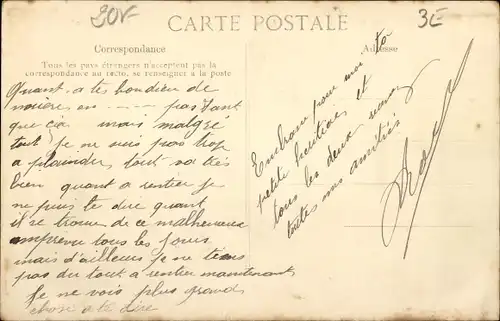 20V-
3E
CARTE POSTALE
Correspondance
Adresse
Tous les pays étrangers n'acceptent pas la
correspondance au recto, se renseigner à la poste
Quant a tes bondieu de
en - - - - pas tant
que ça mais malgré
tout je ne suis pas trop
a plaindre, tout va très
bien quant a rentier je
ne puis te dire quant
il se trouve de ce malheureux
imprevu tous les jours
mais d'ailleurs je ne tiens
pas du tout a rentier maintenant
Je ne vois plus grand
chose a te dire
Embrasse pour moi ta
petite et
tous les deux recevez
toutes mes amitiés